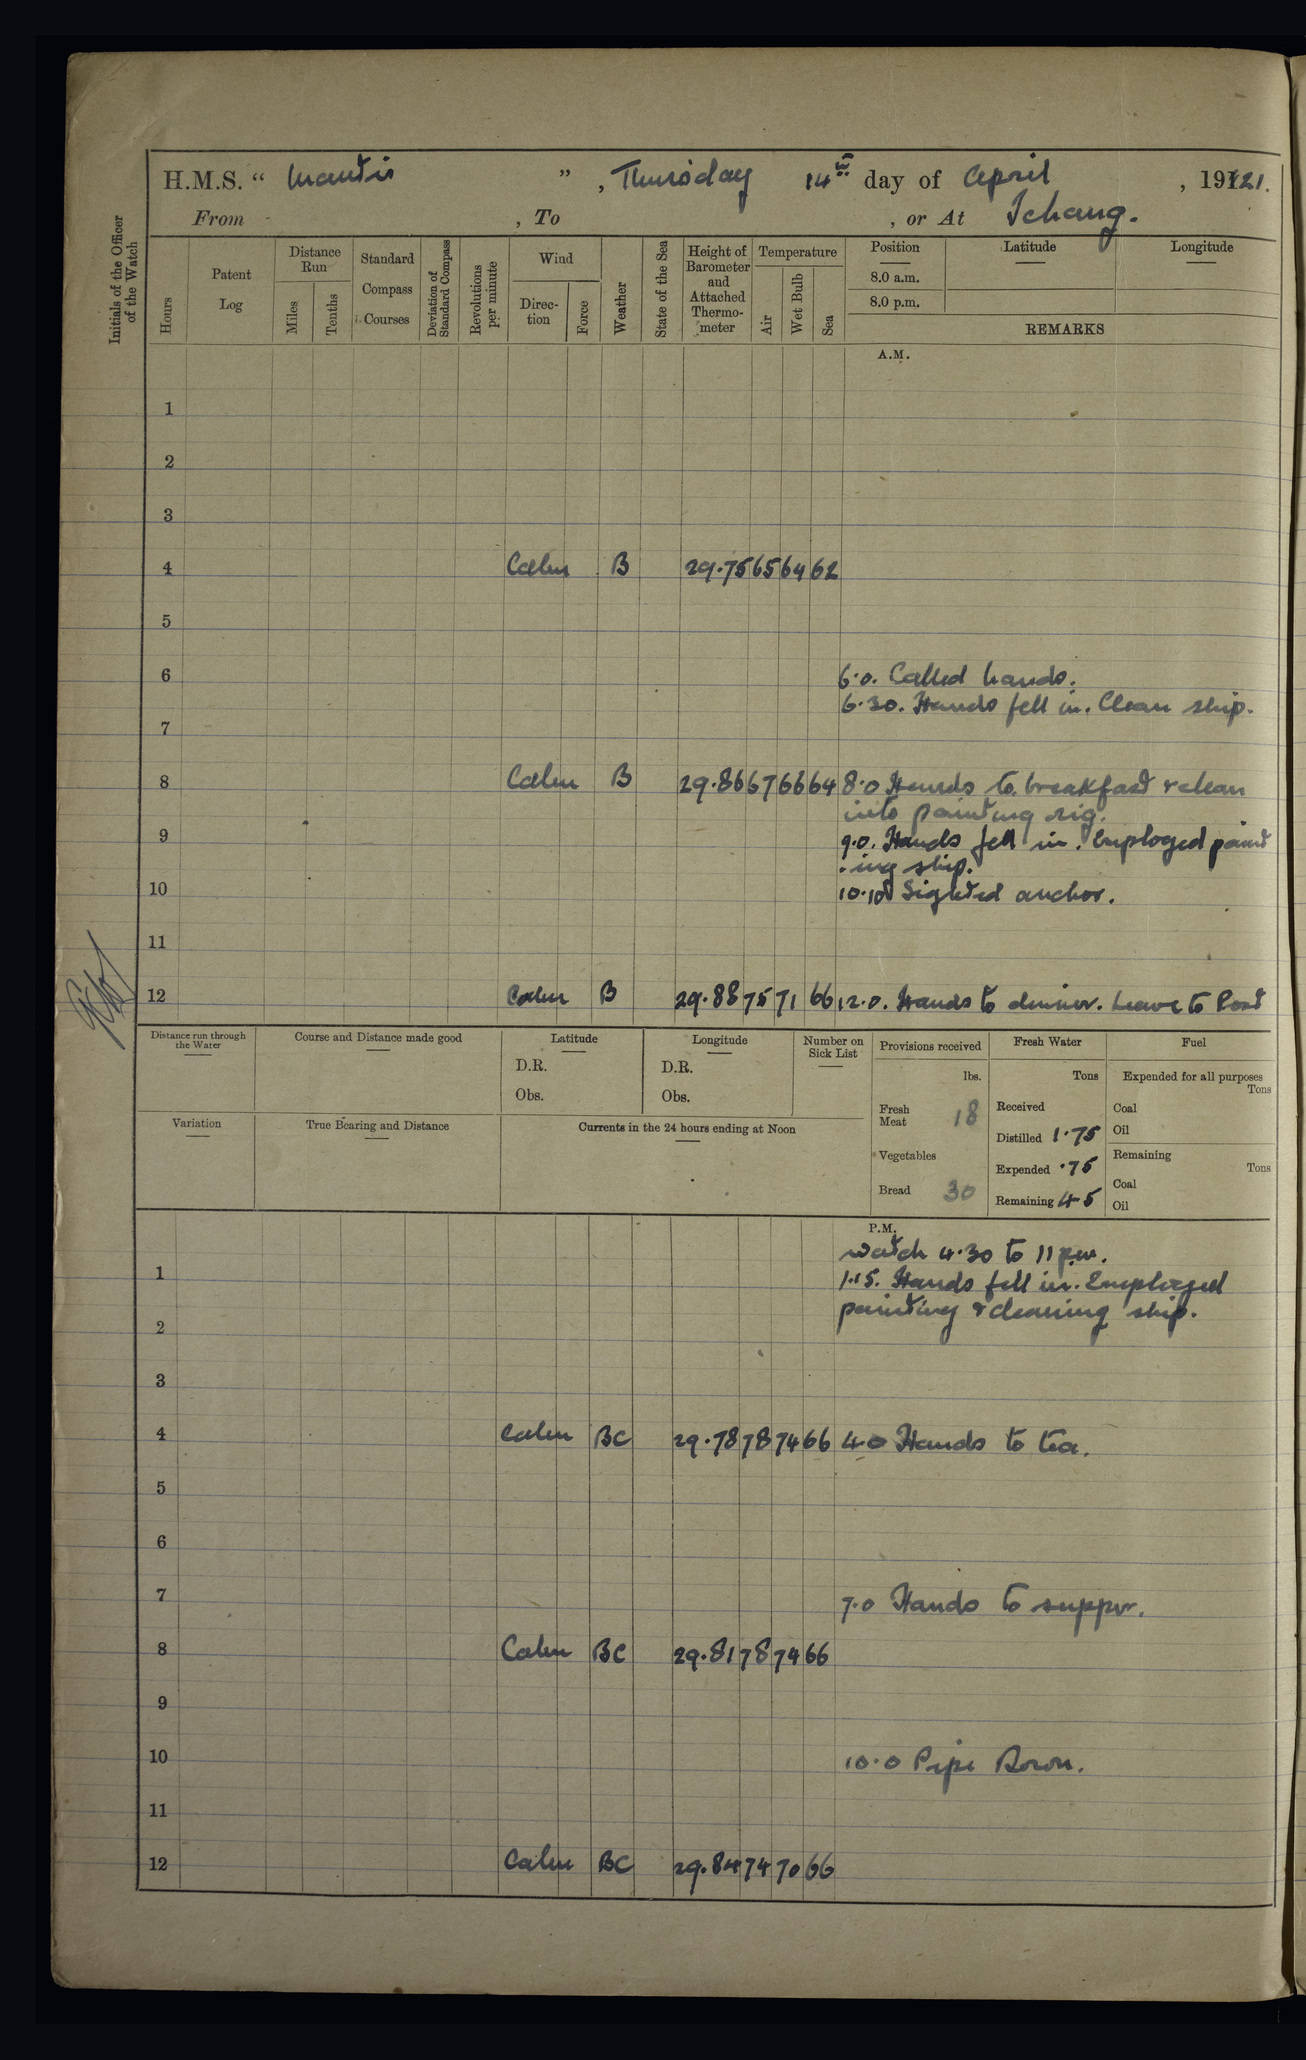 H.M.S. “ Mantis ” , Thursday 14th day of April , 1921.
From - , To , or At Ichang.
Initials of the Officer of the Watch
Hours
Patent Log
Distance Run
Miles
Tenths
Standard Compass Courses
Deviation of Standard Compass
Revolutions per minute
Wind
Direction
Force
Weather
State of the Sea
Height of Barometer and Attached Thermometer
Temperature
Air
Wet Bulb
Sea
Position
8.0 a.m.
8.0 p.m.
Latitude
Longitude
REMARKS
A.M.
1
2
3
4 Calm B 29.75 65 64 62
5
6 6.0. Called hands.
6.30. Hands fell in. Clean ship.
7
8 Calm B 29.86 67 66 64 8.0 Hands to breakfast & clean
into painting rig.
9 9.0. Hands fell in. Employed paint
-ing ship.
10 10.10 Sighted anchor.
11
12 Calm B 29.88 75 71 66 12.0. Hands to dinner. Leave to Port
Distance run through the Water
Course and Distance made good
Latitude
D.R.
Obs.
Longitude
D.R.
Obs.
Number on Sick List
Variation
True Bearing and Distance
Currents in the 24 hours ending at Noon
Provisions received
lbs.
Fresh Meat 18
Vegetables
Bread 30
Fresh Water
Tons
Received
Distilled 1.75
Expended .75
Remaining 4.5
Fuel
Expended for all purposes
Tons
Coal
Oil
Remaining
Tons
Coal
Oil
P.M.
watch 4.30 to 11 p.m.
1 1.15. Hands fell in. Employed
painting & cleaning ship.
2
3
4 Calm BC 29.78 78 74 66 4.0 Hands to tea.
5
6
7 7.0 Hands to supper.
8 Calm BC 29.81 78 74 66
9
10 10.0 Pipe Down.
11
12 Calm BC 29.84 74 70 66